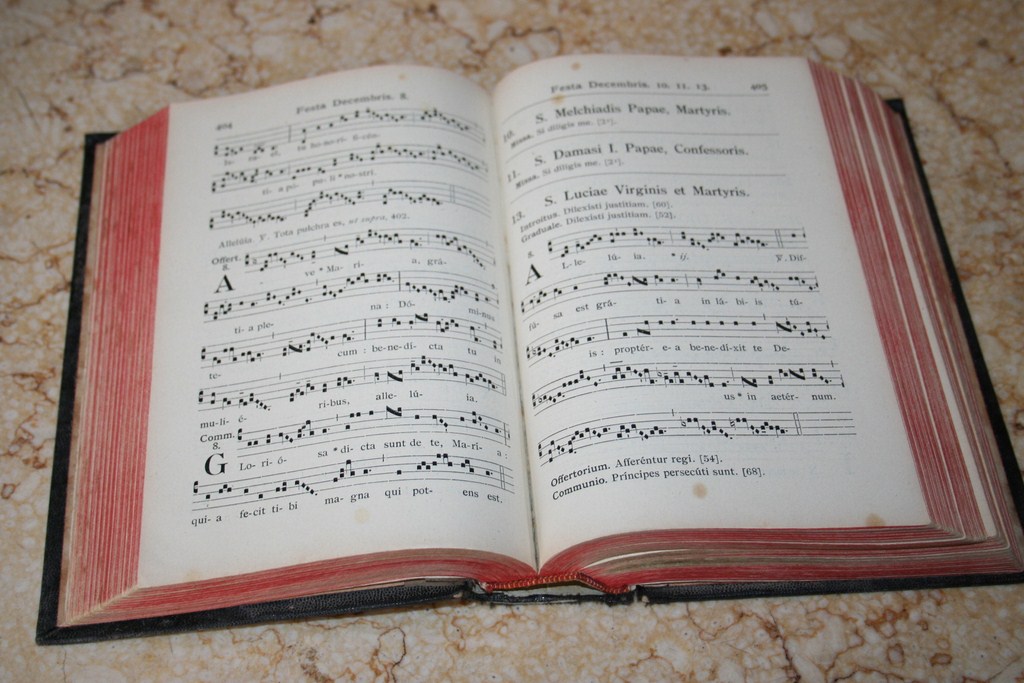 404
Festa Decembris. 8.
la- ra- el, tu ho-no-ri- fi-cén-
ti- a pó- pu- li * no-stri.
Allelúia. ℣. Tota pulchra es, ut supra, 402.
Offert.
8.
A
ve * Ma- rí- a, grá-
ti- a ple- na: Dó- mi-nus
te- cum: be-ne-dí- cta tu in
mu-li- é- rí-bus, alle- lú- ia.
Comm.
8.
G
Lo- ri- ó- sa * di- cta sunt de te, Ma-rí- a:
qui- a fe-cit ti- bi ma-gna qui pot- ens est.
Festa Decembris. 10. 11. 13.
405
10. S. Melchiadis Papae, Martyris.
Missa. Si díligis me. [3*].
11. S. Damasi I. Papae, Confessoris.
Missa. Si díligis me. [3*].
13. S. Luciae Virginis et Martyris.
Introitus. Dilexísti justítiam. [60].
Graduale. Dilexísti justítiam. [52].
8.
A
L-le- lú- ia. * ij. ℣. Dif-
fú- sa est grá- ti- a in lá-bi- is tú-
is: proptér- e-a be-ne-dí-xit te De-
us * in aetér- num.
Offertorium. Afferéntur regi. [54].
Communio. Príncipes persecúti sunt. [68].